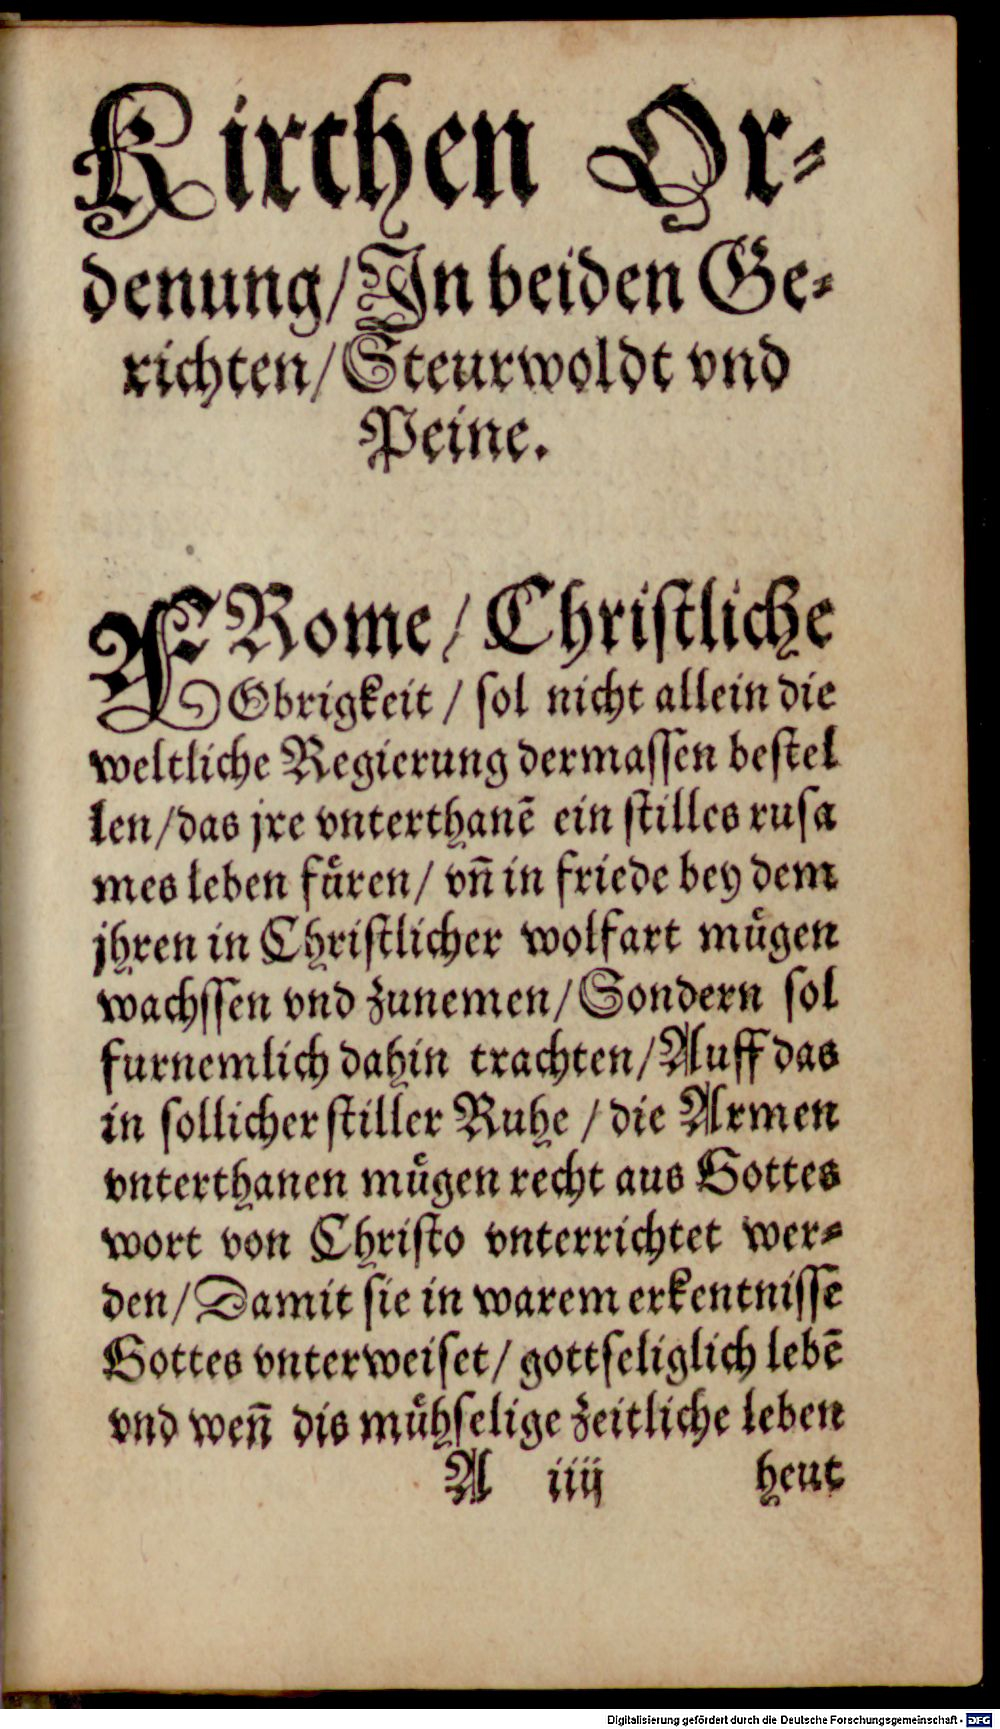 Kirchen Or⸗
denung/ In beiden Ge⸗
richten/ Steurwoldt vnd
Peine.
FRome/ Christliche
Obrigkeit/ sol nicht allein die
weltliche Regierung dermassen bestel
len/ das jre vnterthanē ein stilles rusa
mes leben fuͤren/ vn̄ in friede bey dem
jhren in Christlicher wolfart muͤgen
wachssen vnd zunemen/ Sondern sol
furnemlich dahin trachten/ Auff das
in sollicher stiller Ruhe/ die Armen
vnterthanen muͤgen recht aus Gottes
wort von Christo vnterrichtet wer⸗
den/ Damit sie in warem erkentnisse
Gottes vnterweiset/ gottseliglich lebē
vnd wen̄ dis muͤhselige zeitliche leben
A iiij heut
Digitalisierung gefördert durch die Deutsche Forschungsgemeinschaft - DFG